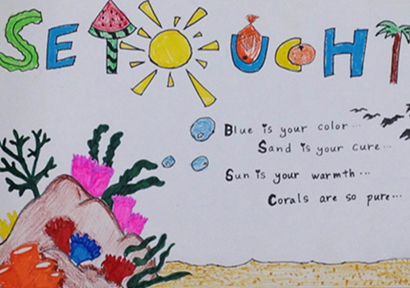 SETOUCHI
Blue is your color...
Sand is your cure...
Sun is your warmth...
Corals are so pure...